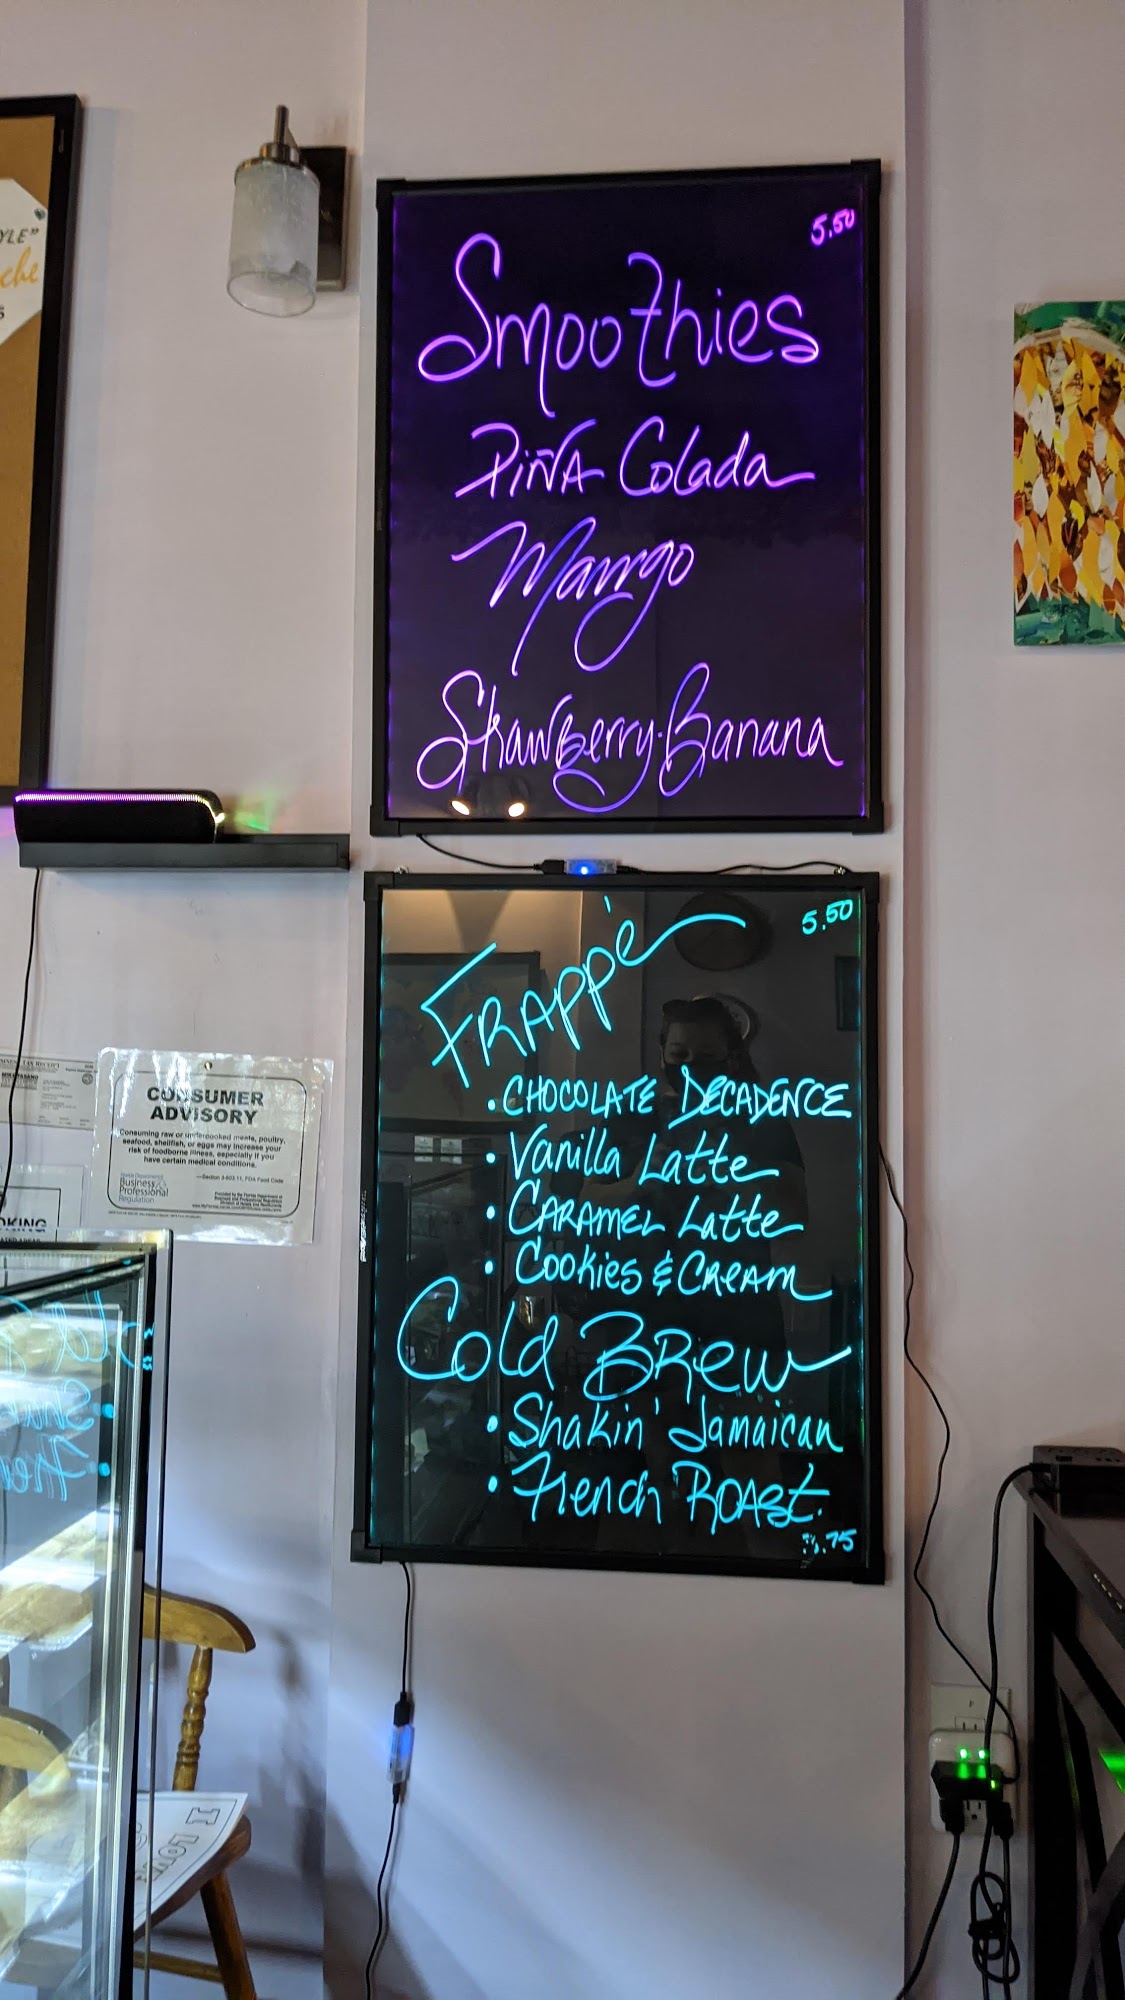 YLE"
che
S
5.50
Smoothies
PiÑA Colada
Mango
Strawberry-Banana
5.50
FRAPPé
• CHOCOLATE DECADENCE
• Vanilla Latte
• CARAMEL Latte
• Cookies & CREAM
Cold BREW
• Shakin' Jamaican
• French ROAST.
.75
CONSUMER
ADVISORY
Consuming raw or undercooked meats, poultry,
seafood, shellfish, or eggs may increase your
risk of foodborne illness, especially if you
have certain medical conditions.
—Section 3-603.11, FDA Food Code
Business
Professional
Regulation
OKING
I LOVE